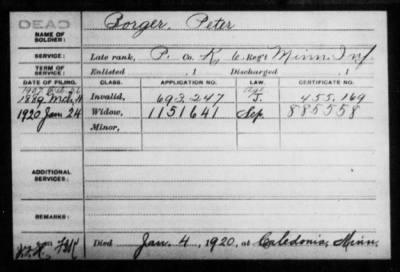 DEAD
NAME OF SOLDIER: Borger, Peter
SERVICE: Late rank, P. Co. K, 6 Reg't Minn. Inf.
TERM OF SERVICE: Enlisted , 1 Discharged , 1
DATE OF FILING. CLASS. APPLICATION NO. LAW. CERTIFICATE NO.
1907
1889 Mch. 11 Invalid, 693.247 J. 455.169
1920 Jan 24 Widow, 1151641 Sep. 885558
Minor,
ADDITIONAL SERVICES:
REMARKS:
Died Jan. 4, 1920, at Caledonia, Minn.